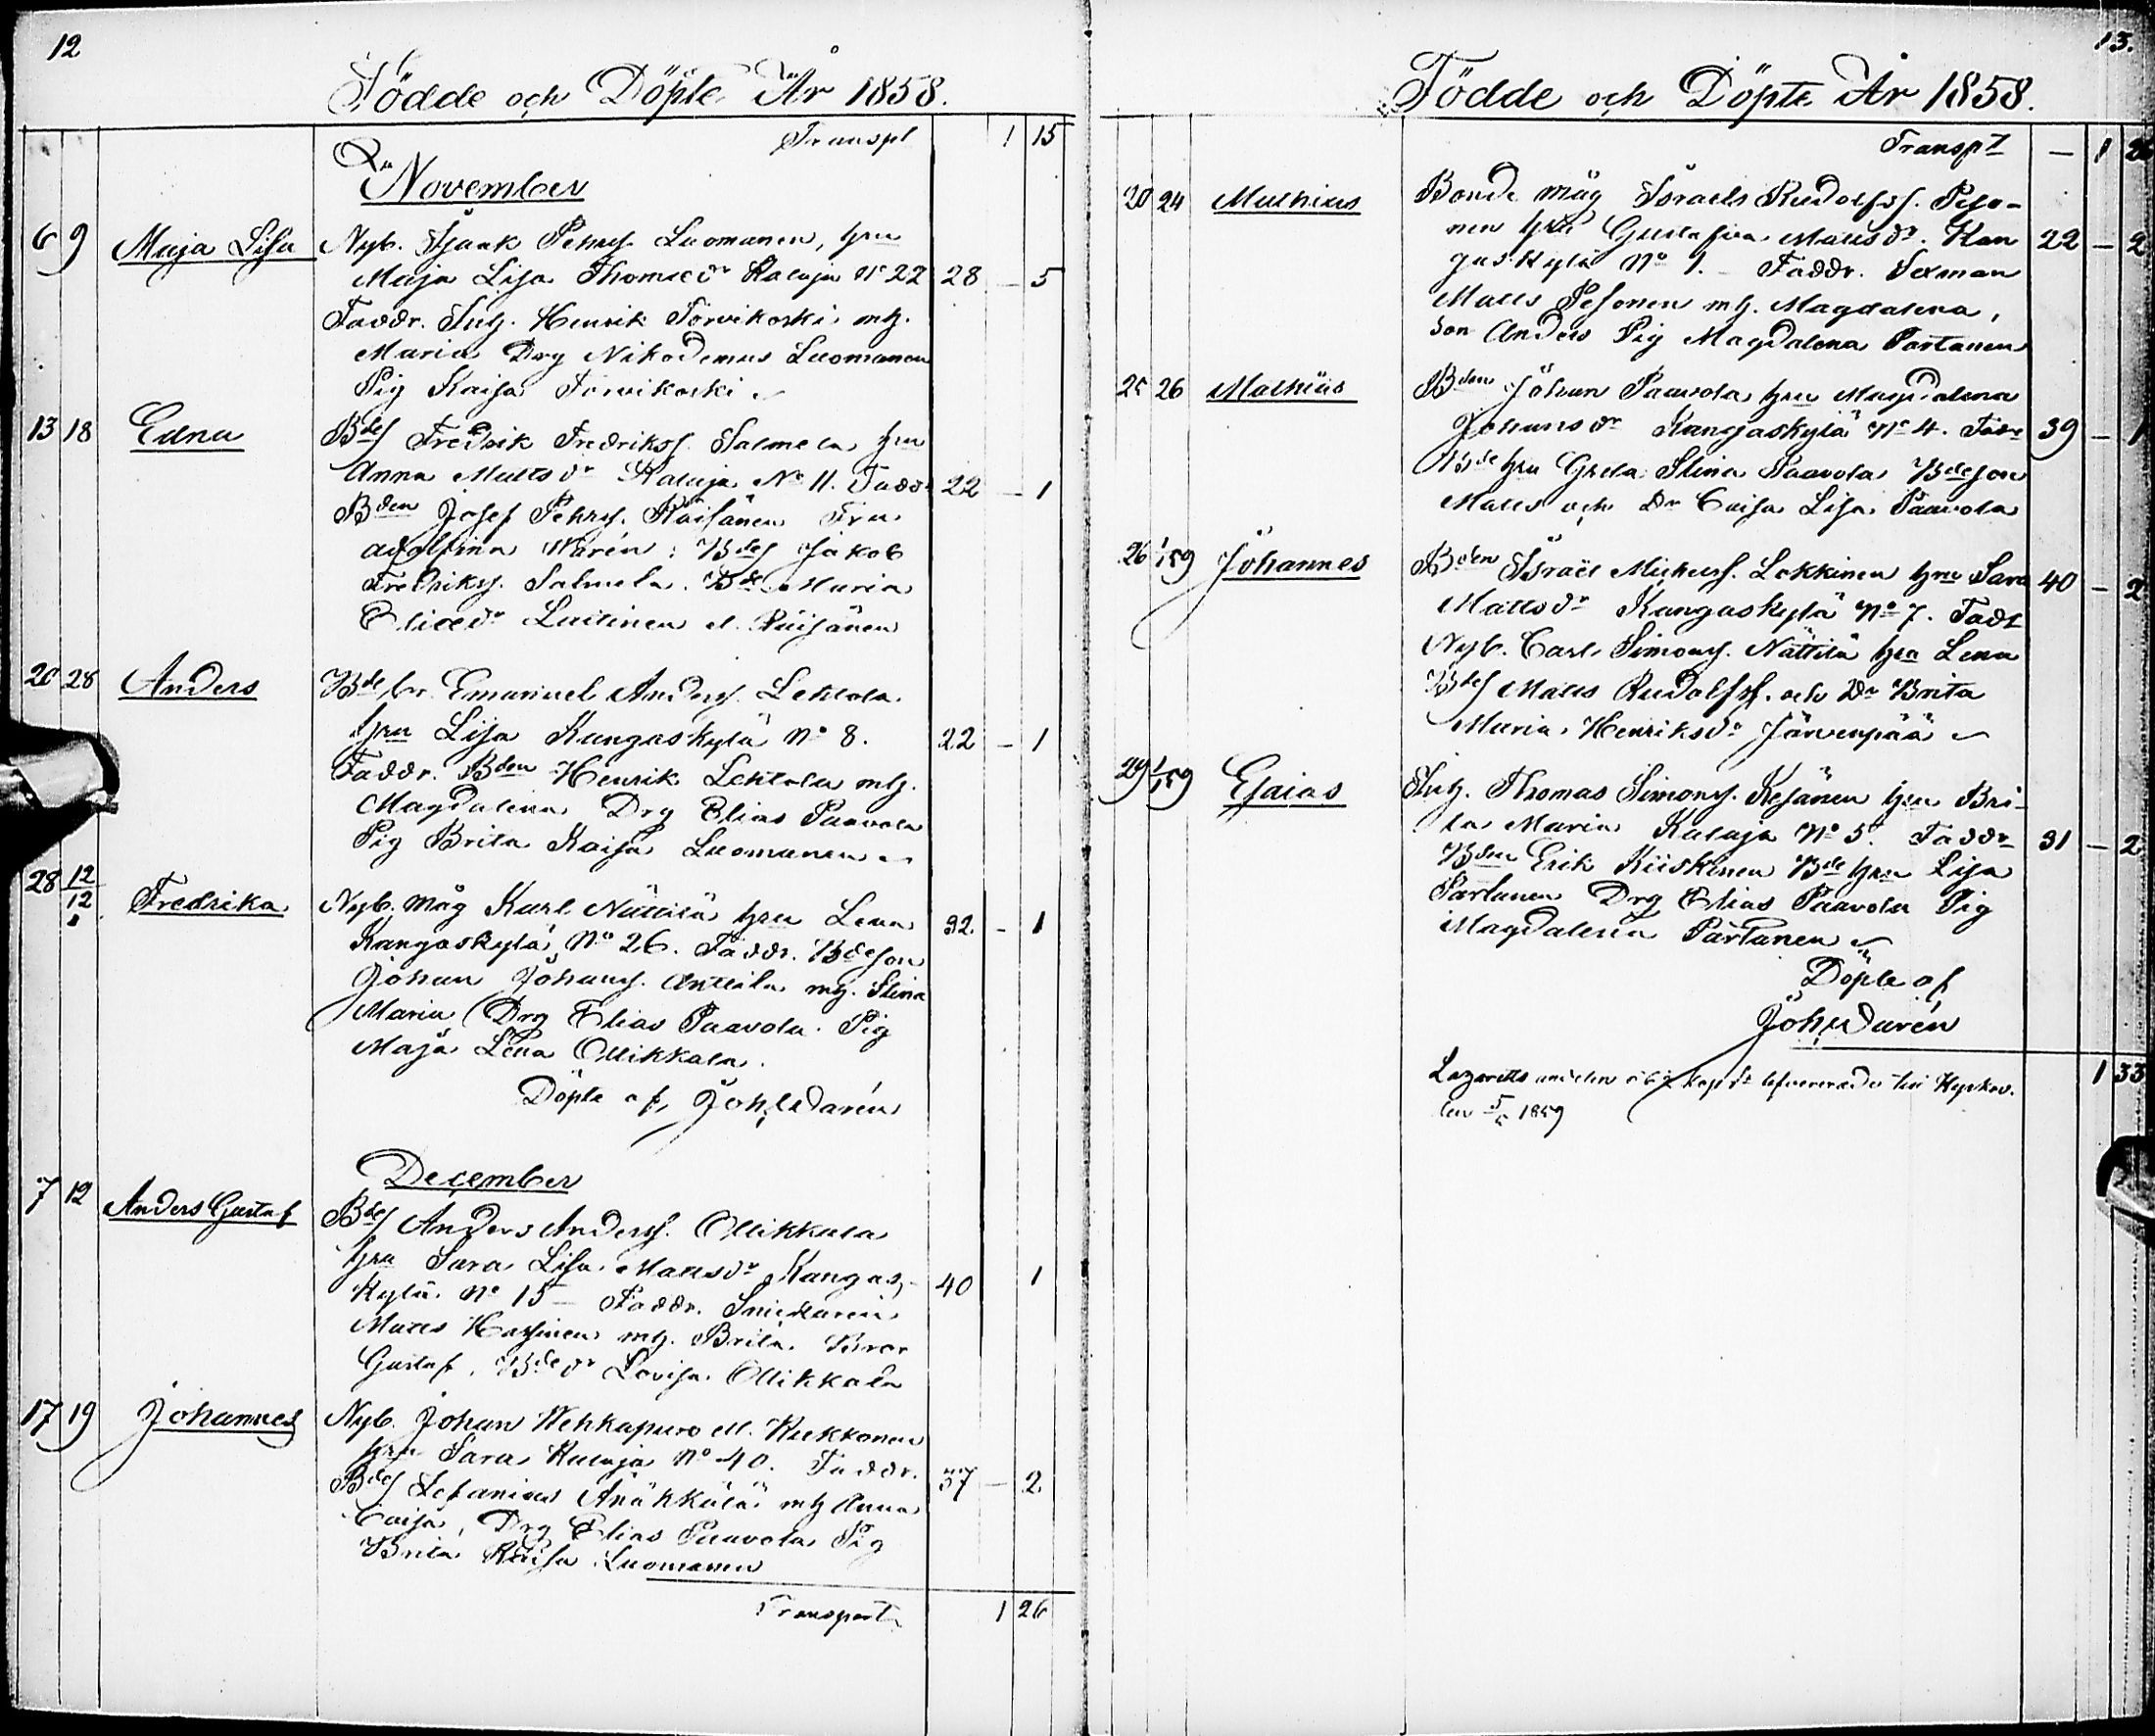 12
Födde och Döpte År 1858.
Transpt 1 15
November
6 9 Maja Lisa Nyb. Isaak Pehrs. Luomanen, hru
Maja Lisa Thomædr Kaluja No 22 28 – 5
Faddr. Inh. Henrik Torvikoski mh.
Maria Drg Nikodemus Luomanen
Pig Kaisa Torvikoski
13 18 Edna Bdes Fredrik Fredrikss. Salmela hru
Anna Mattsdr Kaluja No 11. Faddr 22 – 1
Bden Josef Pehrs. Räisänen Fru
Adolfina Warén; Bdes Jakob
Fredrikss. Salmela. Bde Maria
Eliædr Laitinen el. Räisänen
20 28 Anders Bde br. Emanuel Anders. Lehtola
hru Lisa Kangaskylä No 8. 22 – 1
Faddr. Bden Henrik Lehtola mh.
Magdalena Drg Elias Paavola
Pig Brita Kaisa Luomanen
28 12/12 Fredrika Nyb. måg Karl Nättilä hru Lena 32 – 1
Kangaskylä No 26. Faddr. Bdeson
Johan Johans. Anttila mh. Stina
Maria Drg Elias Paavola. Pig
Maja Lena Ollikkala.
Döpte af, Joh. Warén
December
7 12 Anders Gustaf Bdes Anders Anderss. Ollikkala
hru Sara Lisa Mattsdr Kangas-
kylä No 15 – Faddr. Snickaren 40 1
Matts Hassinen mh. Brita. Bror
Gustaf, Bdedr Lovisa Ollikkala
17 19 Johannes Nyb. Johan Wehkapuro el. Kukkonen
hru Sara Kaluja No 40. Faddr.
Bdes Lefanias Änäkkälä mh Anna 37 – 2
Caisa, Drg Elias Paavola Pig
Brita Kaisa Luomanen
Transport 1 26
13.
Födde och Döpte År 1858.
Transpt – 1 26
20 24 Mathias Bonde måg Israels Rudolfss. Peso-
nen hru Gustafva Mattsdr. Kan 22 – 2
gaskylä No 1. – Faddr. Sexman
Matts Pesonen mh. Magdalena,
son Anders Pig Magdalena Partanen
25 26 Mathias Bden Johan Paavola hru Magdalena
Johansdr Kangaskylä No 4. Faddr 39 – 1
Bde hru Greta Stina Paavola Bdeson
Matts och Dr Caisa Lisa Paavola
26 1/159 Johannes Bden Israel Michels. Lokkinen hru Sara 40 – 2
Mattsdr Kangaskylä No 7. Fadr
Nyb. Carl Simons. Nättilä hru Lena
Bdes Matts Rudolfss. och Dr Brita
Maria Henriksdr Järvenpää
29 1/159 Esaias Inh. Thomas Simons. Kesänen hru Bri-
ta Maria Kaluja No 5. Faddr 31 – 2
Bden Erik Kiiskinen Bde hru Lisa
Partanen Drg Elias Paavola Pig
Magdalena Partanen
Döpte af
Joh. Warén
1 33
Lazaretts
den 5/5 1859